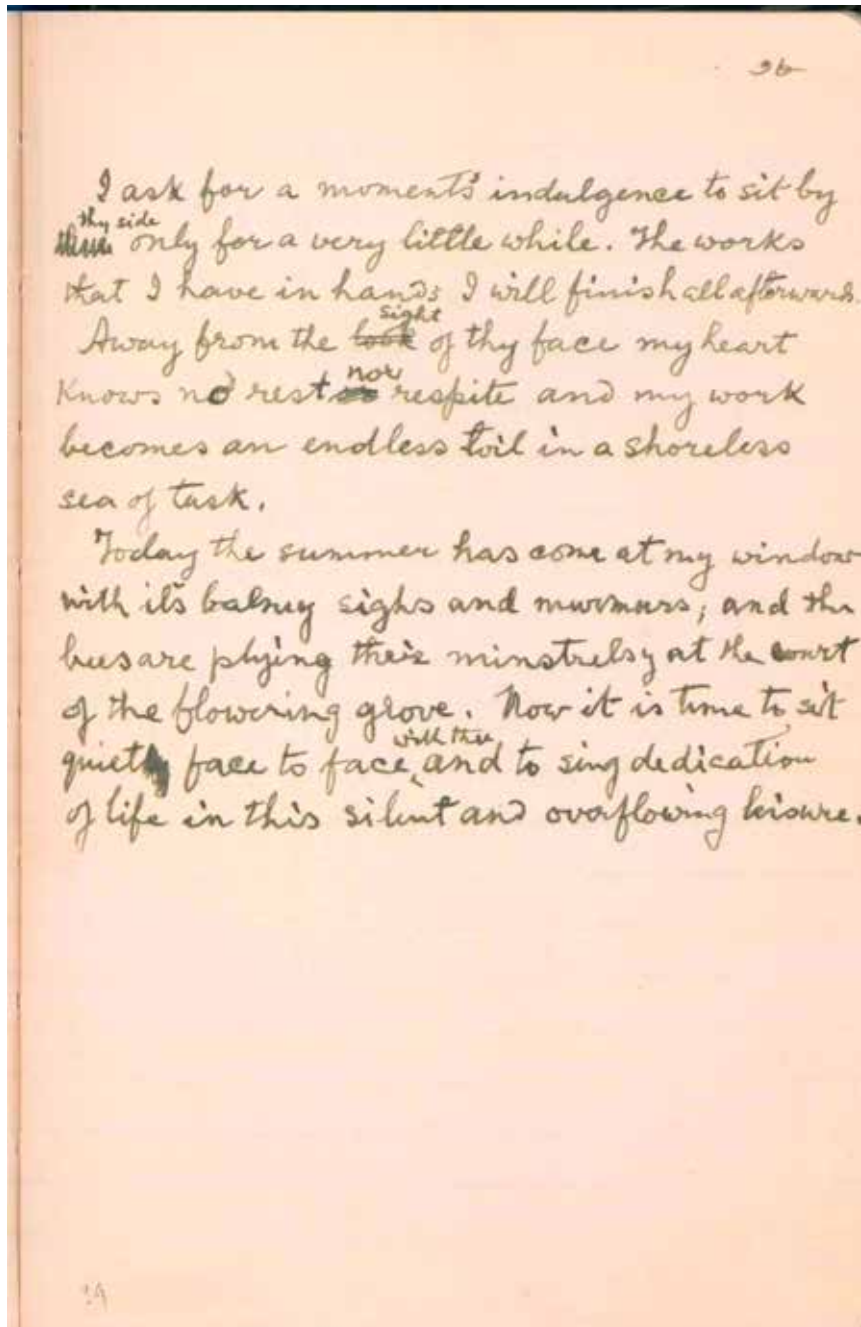 26
I ask for a moment's indulgence to sit by
thy side
only for a very little while. The works
that I have in hands I will finish all afterwards.
sight
Away from the look of thy face my heart
nor
knows no rest or respite and my work
becomes an endless toil in a shoreless
sea of task.
Today the summer has come at my window
with its balmy sighs and murmurs; and the
bees are plying their minstrelsy at the court
of the flowering grove. Now it is time to sit
with thee
quiet face to face, and to sing dedication
of life in this silent and overflowing leisure.